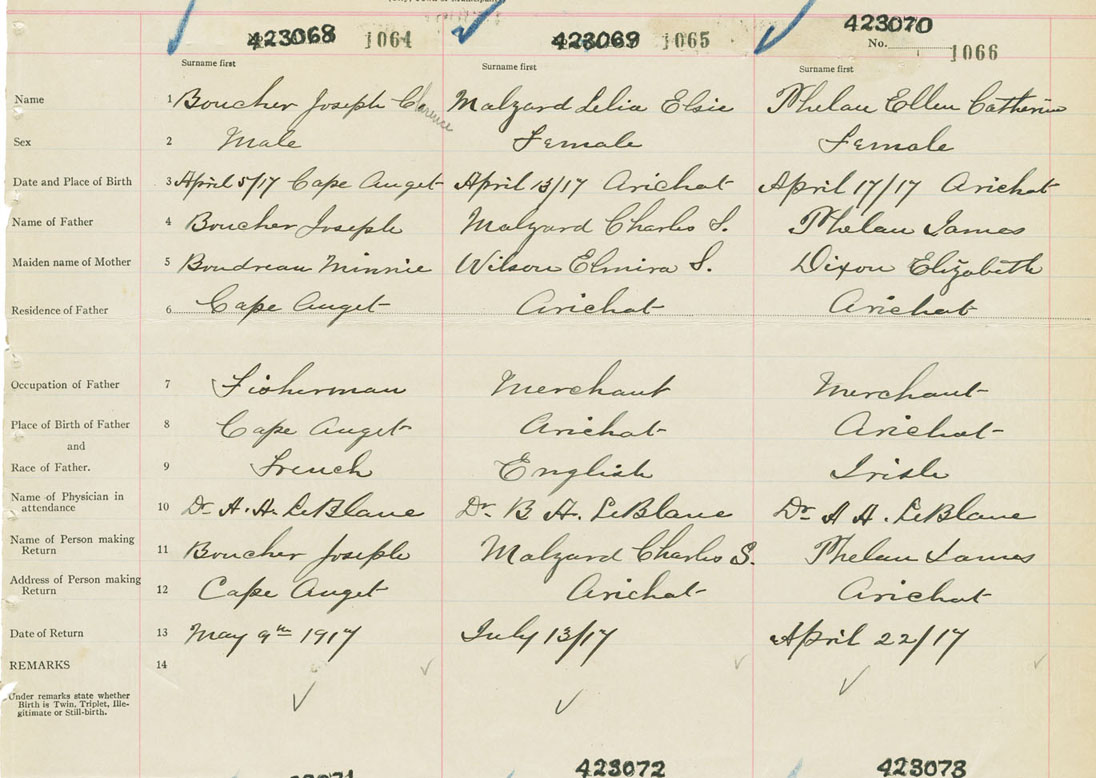 423068 1064 423069 1065 423070
No. 1066
Surname first Surname first Surname first
Name 1 Boucher Joseph Clarence Malzard Lelia Elsie Phelan Ellen Catherin
Sex 2 Male Female Female
Date and Place of Birth 3 April 5/17 Cape Auget April 13/17 Arichat April 17/17 Arichat
Name of Father 4 Boucher Joseph Malzard Charles S. Phelan James
Maiden name of Mother 5 Boudreau Minnie Wilson Elmira S. Dixon Elizabeth
Residence of Father 6 Cape Auget Arichat Arichat
Occupation of Father 7 Fisherman Merchant Merchant
Place of Birth of Father 8 Cape Auget Arichat Arichat
and
Race of Father. 9 French English Irish
Name of Physician in
attendance 10 Dr. A. A. LeBlanc Dr. B A. LeBlanc Dr. A A. LeBlanc
Name of Person making
Return 11 Boucher Joseph Malzard Charles S. Phelan James
Address of Person making
Return 12 Cape Auget Arichat Arichat
Date of Return 13 May 9th 1917 July 13/17 April 22/17
REMARKS 14
Under remarks state whether
Birth is Twin, Triplet, Ille-
gitimate or Still-birth.
423072 423073